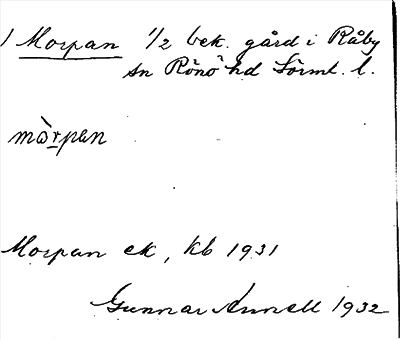 ) Morpan 1/2 bek. gård i Råby
sn Rönö hd Sörml. l.
mòrpan
Morpan ek, kb 1931
Gunnar Annell 1932